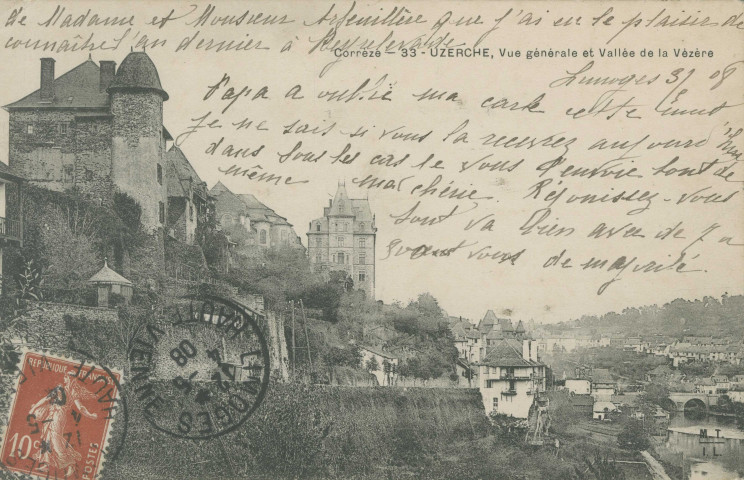 de Madame et Monsieur Arfeuillère que j'ai eu le plaisir de
connaître l'an dernier à
Corrèze - 33 - UZERCHE, Vue générale et Vallée de la Vézère
Limoges 31 08
Papa a oublié ma carte cette
je ne sais si vous la recevrez aujourd'hui
dans tous les cas je vous l'envoie tout de
même ma chérie. Réjouissez-vous
tout va bien avec de
vous de majorité.
REPUBLIQUE
10
POSTES
LIMOGES
HAUTE VIENNE
08
M.T.
I L